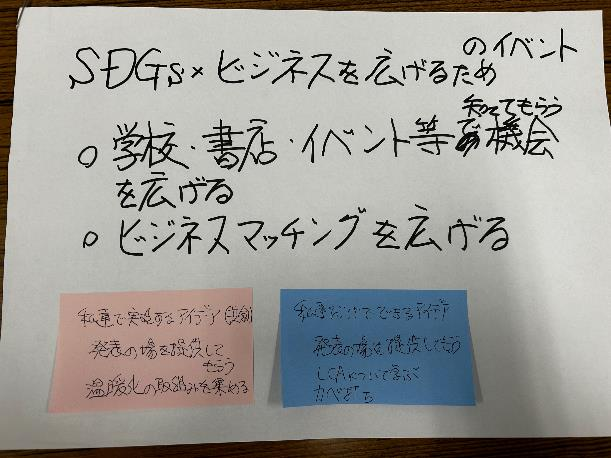 SDGs×ビジネスを広げるためのイベント
○ 学校・書店・イベント等で知ってもらう機会
を広げる
○ ビジネスマッチングを広げる
私達で実現するアイデア
発表の場を提供して
もらう
温暖化の取組みを集める
私達だけでできるアイデア
発表の場を提供してもらう
LCAについて学ぶ
カベ打ち